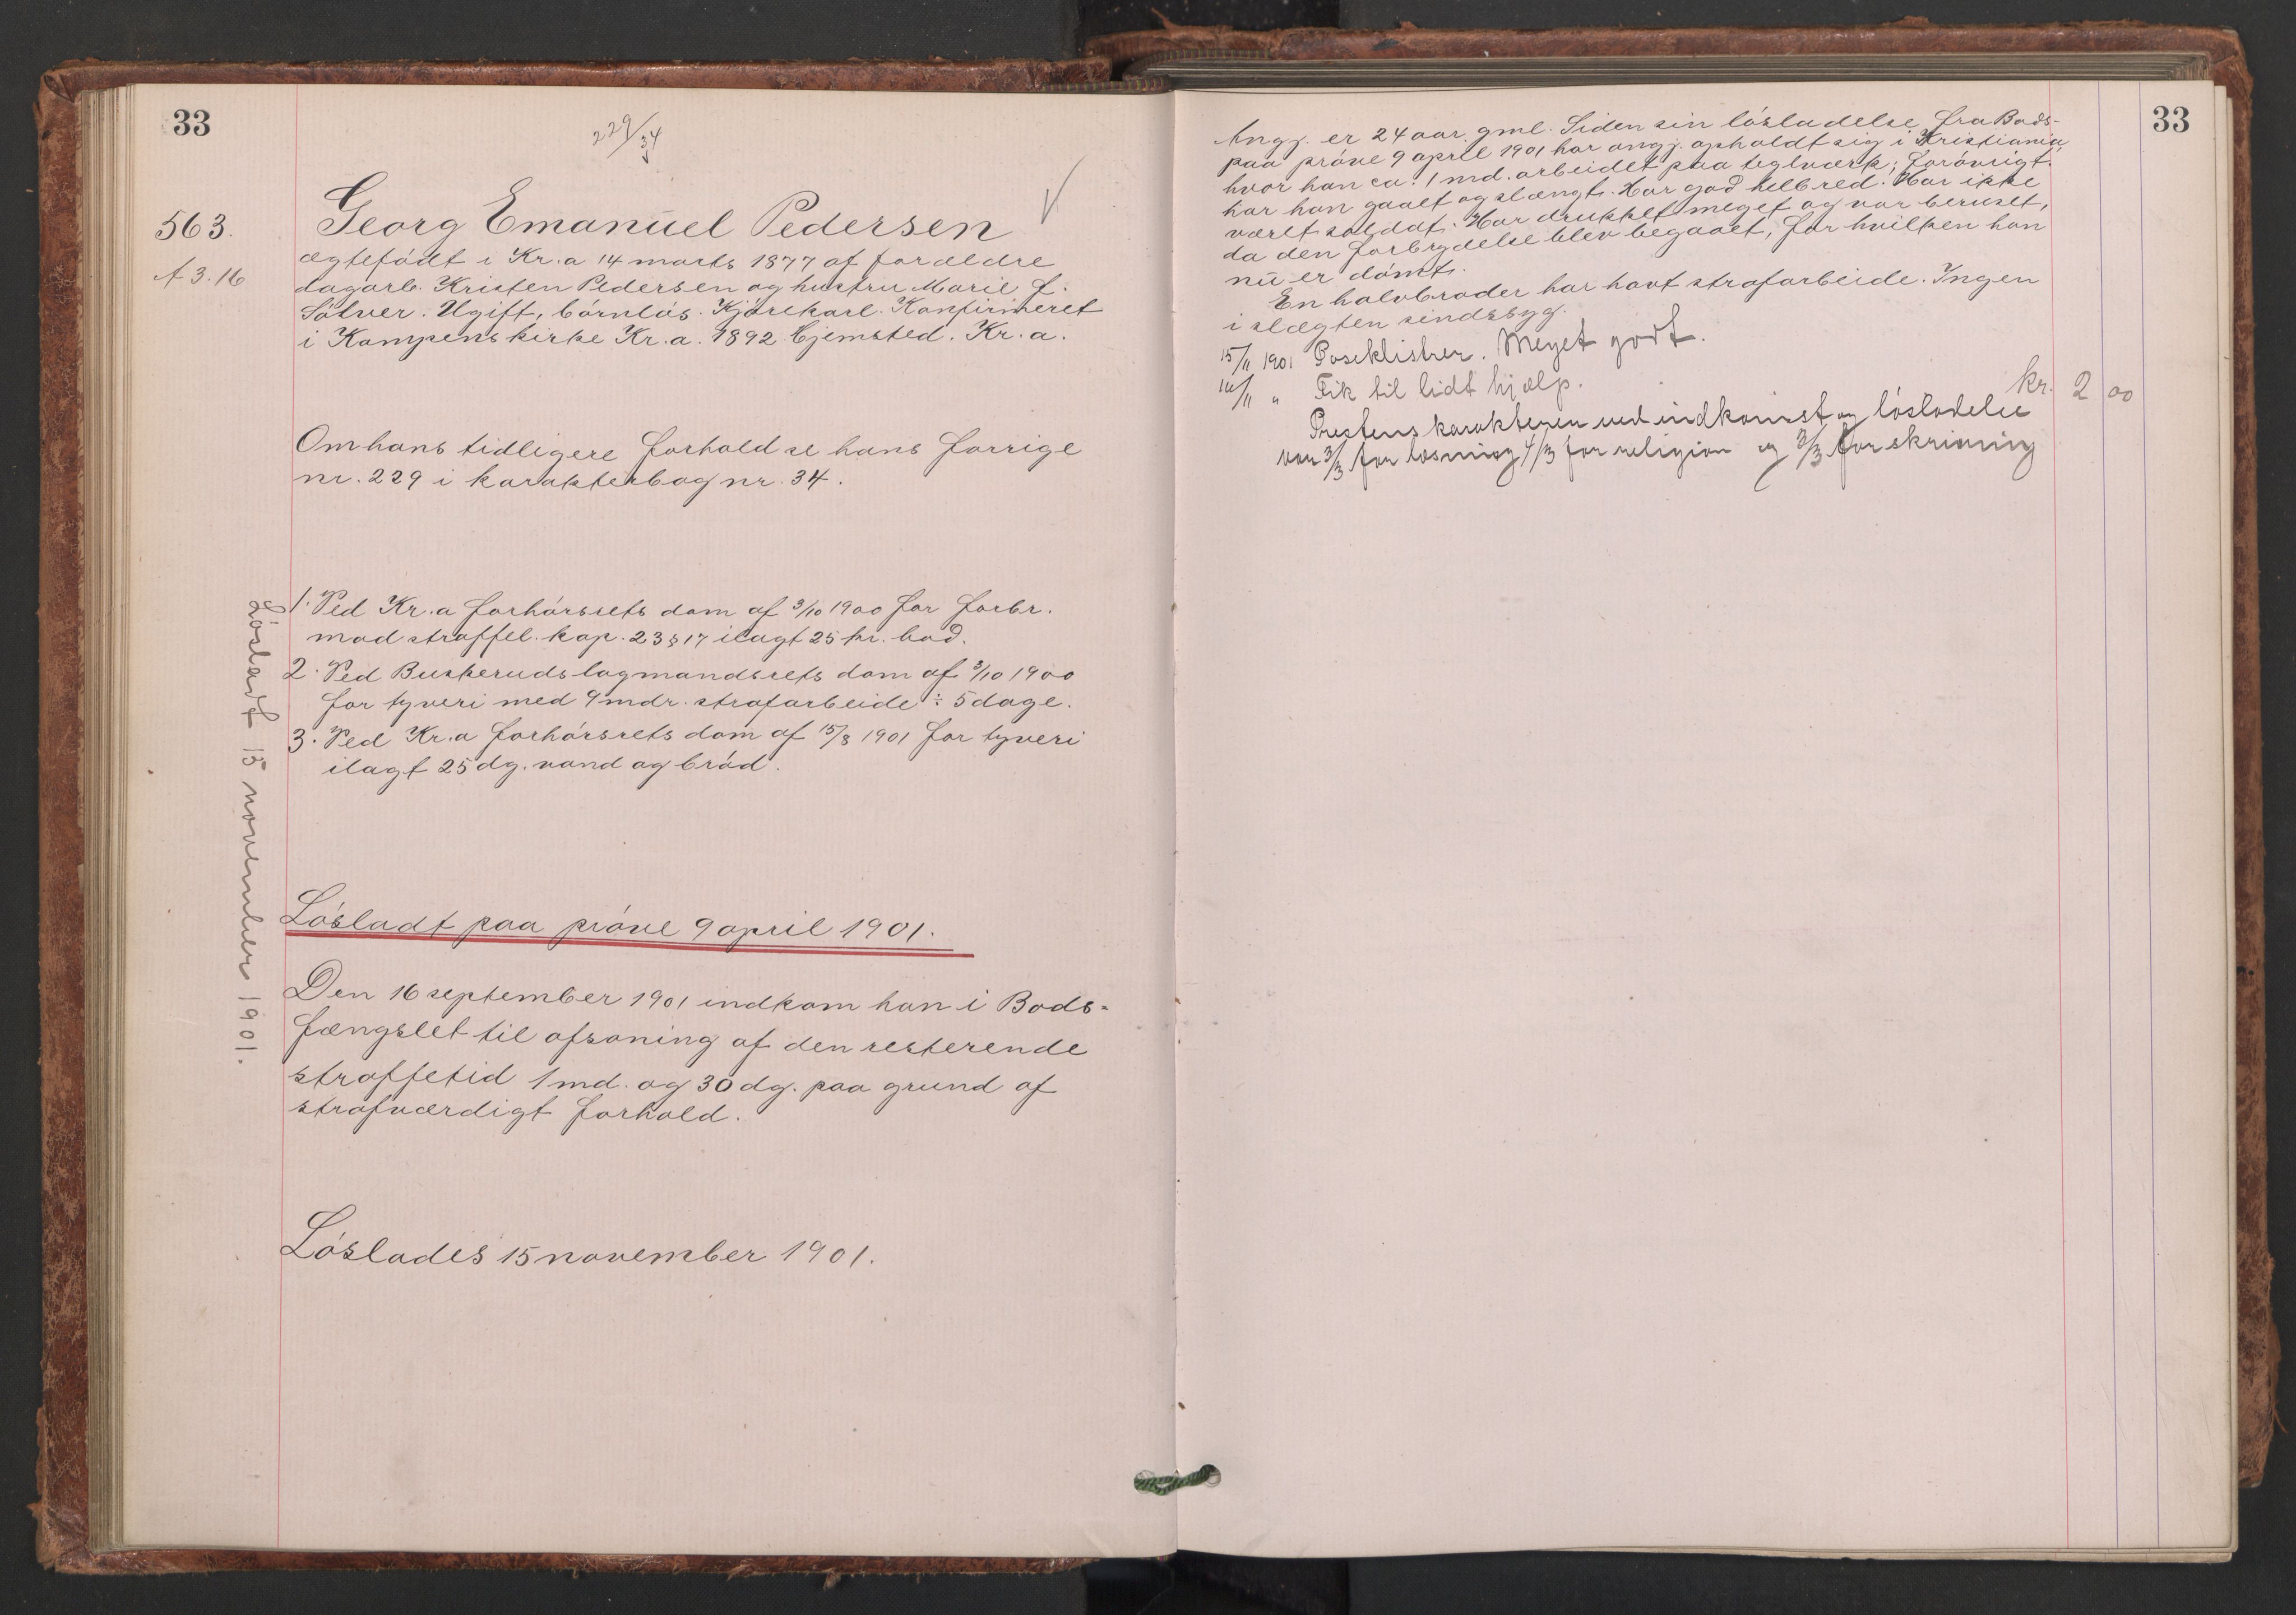 33
229/34
563.
A 3.16
Georg Emanuel Pedersen
ægtefödt i Kr.a 14 marts 1877 af forældre
dagarb. Kristen Pedersen og hustru Marie f.
Sölver. Ugift, börnlös. Kjörekarl. Konfirmeret
i Kampens kirke Kr.a. 1892. Hjemsted. Kr.a.
Om hans tidligere forhold se hans forrige
nr. 229 i karakterbog nr. 34.
1. Ved Kr.a forhörsrets dom af 3/10 1900 for forbr.
mod straffel. kap. 23 § 17 ilagt 25 kr. bod.
2. Ved Buskeruds lagmandsrets dom af 3/10 1900
for tyveri med 9 mdr. strafarbeide ÷ 5 dage.
3. Ved Kr.a forhörsrets dom af 15/8 1901 for tyveri
ilagt 25 dg. vand og bröd.
Lösladt 15 november 1901.
Lösladt paa pröve 9 april 1901.
Den 16 september 1901 indkom han i Bods-
fængslet til afsoning af den resterende
straffetid 1 md. og 30 dg. paa grund af
strafværdigt forhold.
Löslades 15 november 1901.
33
Angj. er 24 aar gml. Siden sin lösladelse fra Bods-
paa pröve 9 april 1901 har angj. opholdt sig i Kristiania
hvor han ca. 1 md. arbeidet paa teglværk; forövrigt
har han gaaet og slængt. Har god helbred. Har ikke
været soldat. Har drukket meget og var beruset,
da den forbrydelse blev begaaet, for hvilken han
nu er dömt.
En halvbroder har havt strafarbeide. Ingen
i slægten sindssyg.
15/11 1901 Poseklistrer. Meget godt.
" Fik til lidt hjælp. kr. 2 00
Prestens karakteren ved indkomst og lösladelse
var 3/3 for læsning 4/3 for religion og 3/3 for skrivning